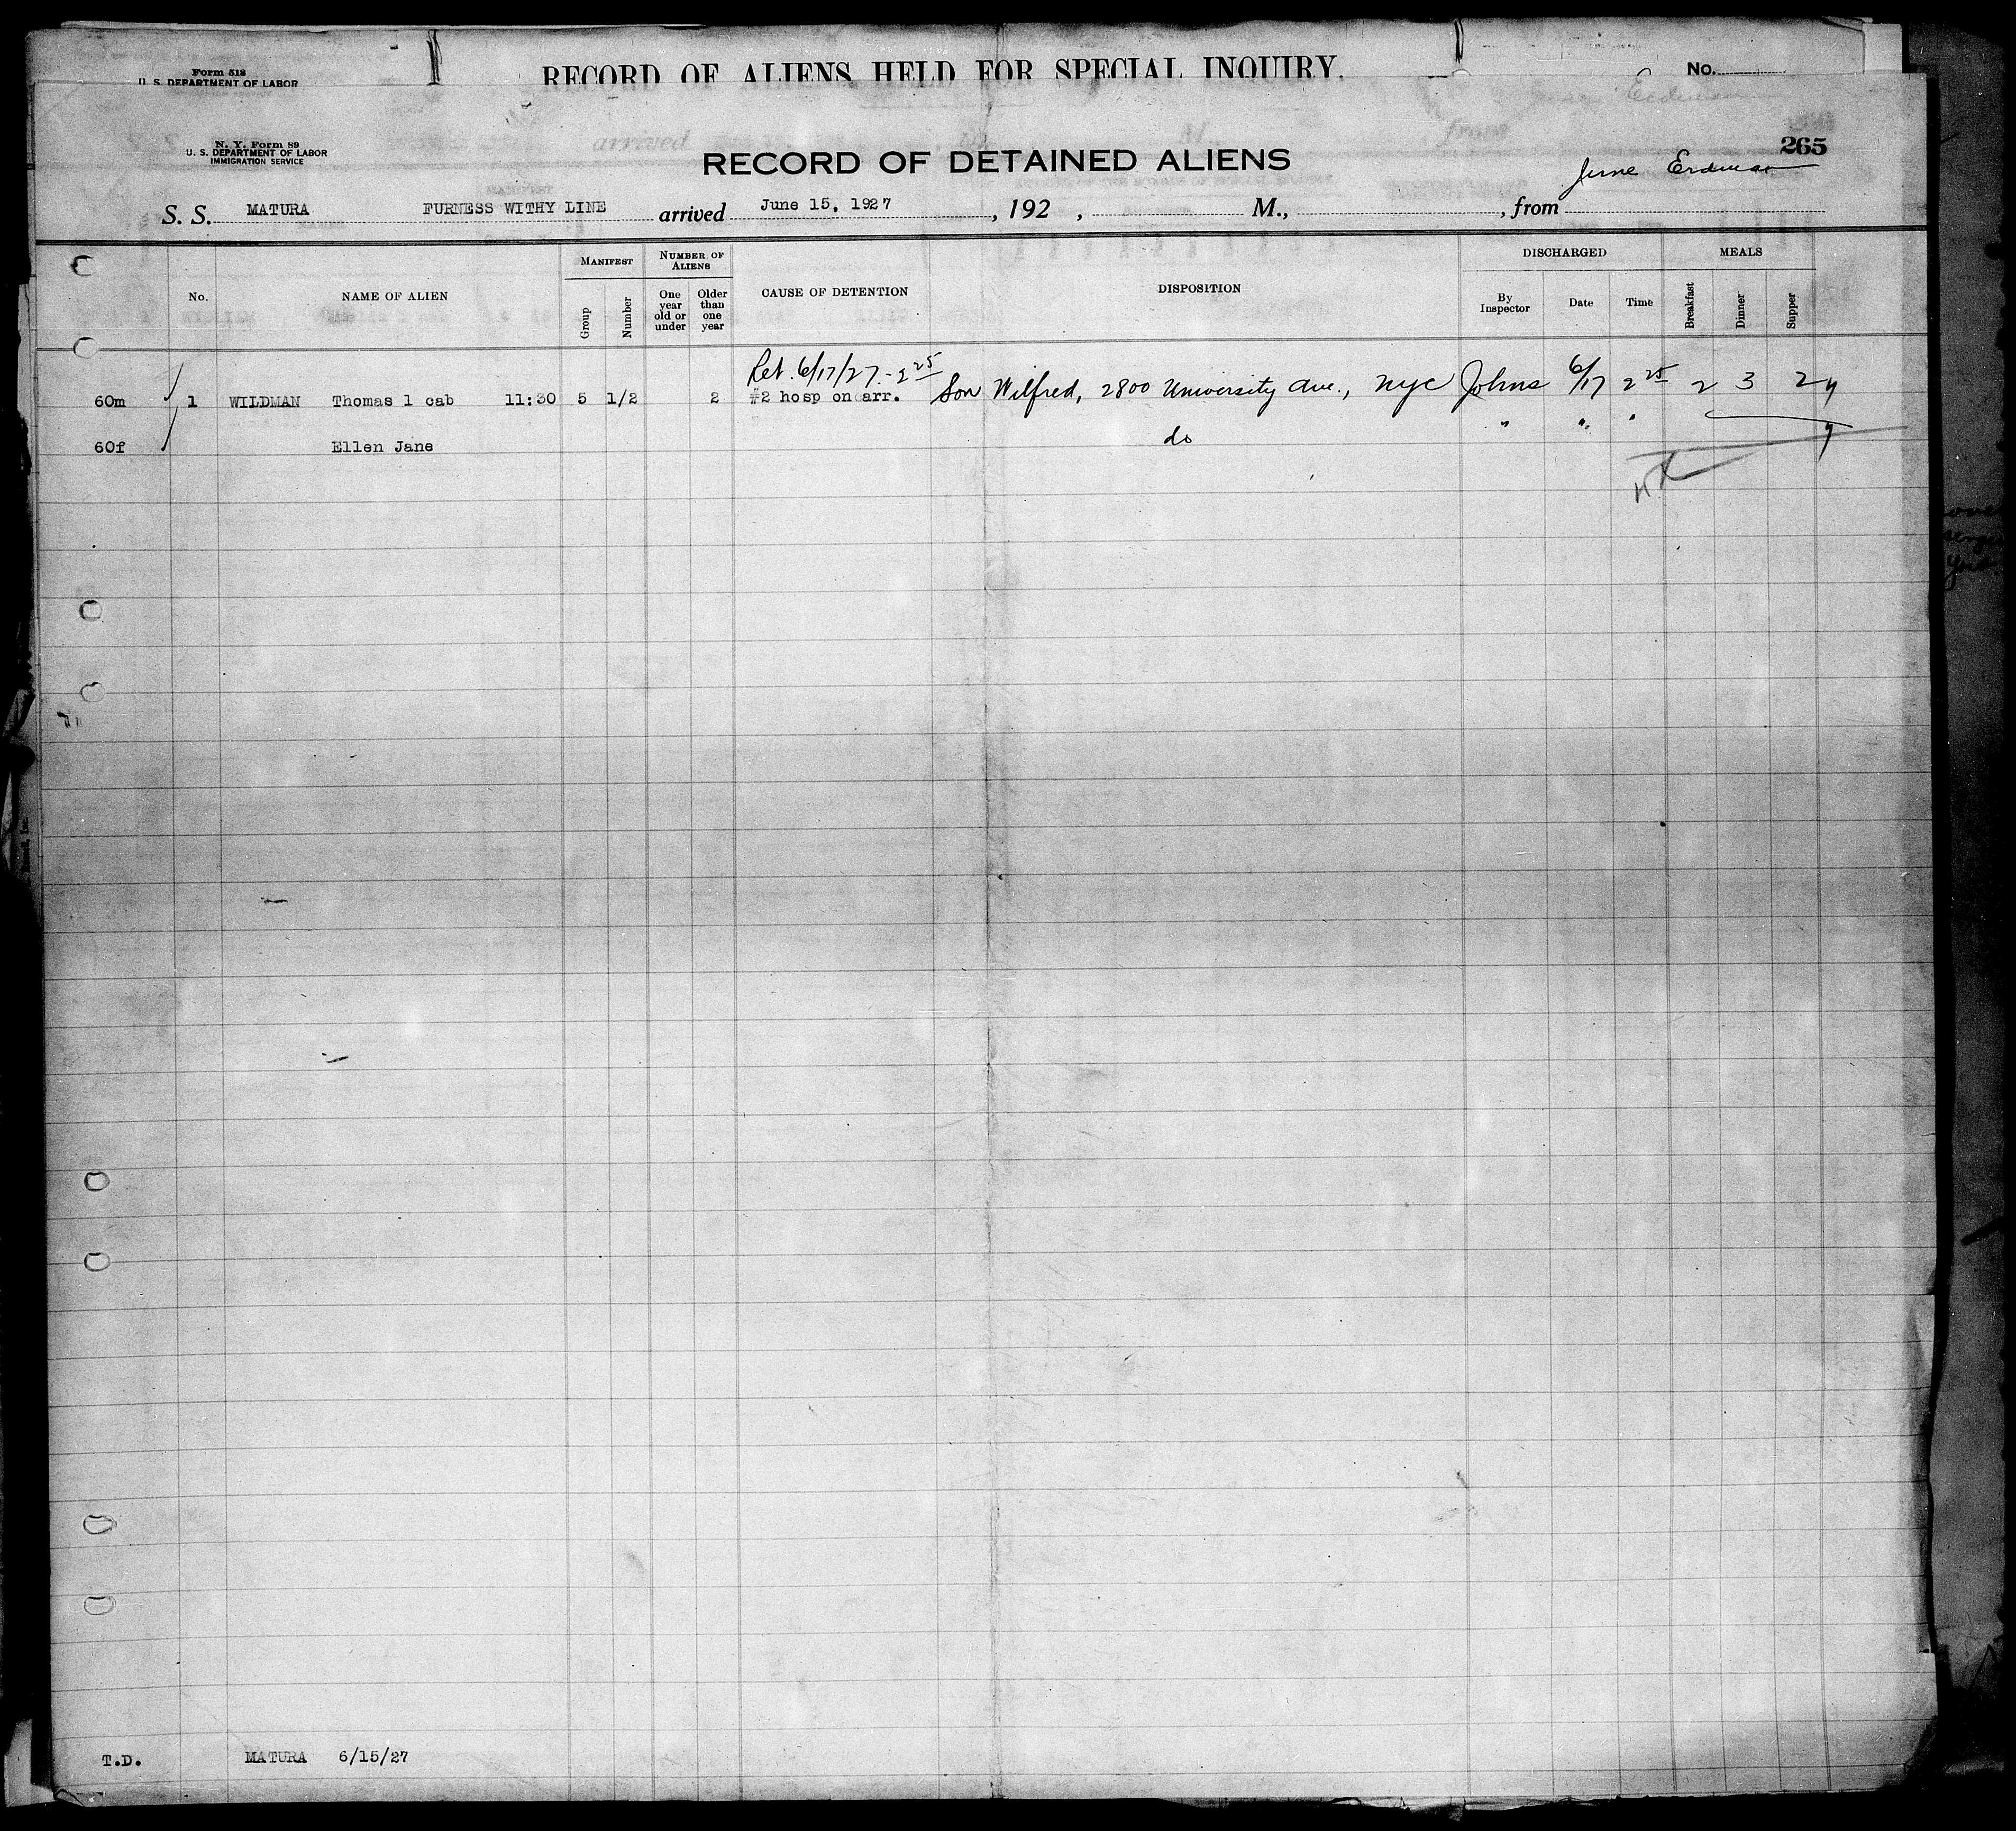 Form 518
U. S. DEPARTMENT OF LABOR
RECORD OF ALIENS HELD FOR SPECIAL INQUIRY.
No.
N. Y. Form 89
U. S. DEPARTMENT OF LABOR
IMMIGRATION SERVICE
RECORD OF DETAINED ALIENS
265
June Erdman
S. S. MATURA FURNESS WITHY LINE arrived June 15, 1927, 192 , M., , from
No. NAME OF ALIEN MANIFEST Group Number NUMBER OF ALIENS One year old or under Older than one year CAUSE OF DETENTION DISPOSITION DISCHARGED By Inspector Date Time MEALS Breakfast Dinner Supper
Ret. 6/17/27 - 2 25
60m 1 WILDMAN Thomas 1 cab 11:30 5 1/2 2 #2 hosp on arr. Son Wilfred, 2800 University Ave., NYC Johns 6/17 2 25 2 3 2
60f Ellen Jane do " " "
T.D. MATURA 6/15/27